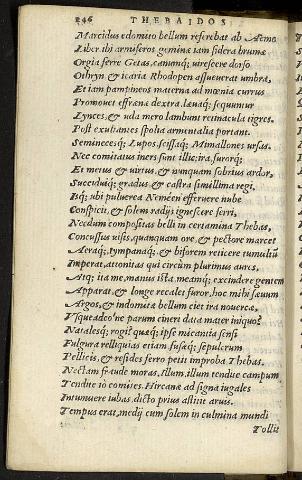 246 THEBAIDOS
Marcidus edomito bellum referebat ab Aemo
Liber. ibi armiferos geminæ iam sidera brumæ
Orgia ferre Getas, canumq; uirescere dorso
Othryn & icaria Rhodopen assueuerat umbra,
Et iam pampineos materna ad mœnia currus
Promouet effræna dextra, læuaq; sequuntur
Lynces, & uda mero lambunt retinacula tigres.
Post exultantes spolia armentalia portant.
Semineceśq; Lupos, scissaq; Mimallones ursas.
Nec comitatus iners sunt illic; ira, furorq;
Et metus & uirtus, & nunquam sobrius ardor,
Succiduiq; gradus & castra simillima regi,
Isq; ubi puluerea Nemeen efferuere nube
Conspicit, & solem radijs ignescere ferri,
Necdum compositas belli in certamina Thebas,
Concussus uisis, quanquam ore, & pectore marcet
Aeraq;, tympanaq;, & biforem reticere tumultū
Imperat, attonitas qui circùm plurimus aures,
Atq; ita me, manus ista, meamq; excindere gentem
Apparat. & longe recalet furor, hoc mihi sæuum
Argos, & indomitæ bellum ciet ira nouercæ.
Vsque adeo'ne parum cineri data mater iniquo?
Natalesq; rogi? quæq; ipse micantia sensi
Fulgura? relliquias etiam fusæq; sepulcrum
Pellicis, & resides ferro petit improba Thebas.
Nectam fraude moras, illum, illum tendite campum
Tendite iò comites, Hircanæ ad signa iugales
Intumuere iubas, dicto prius astitit aruis.
Tempus erat, medij cum solem in culmina mundi
Tollit